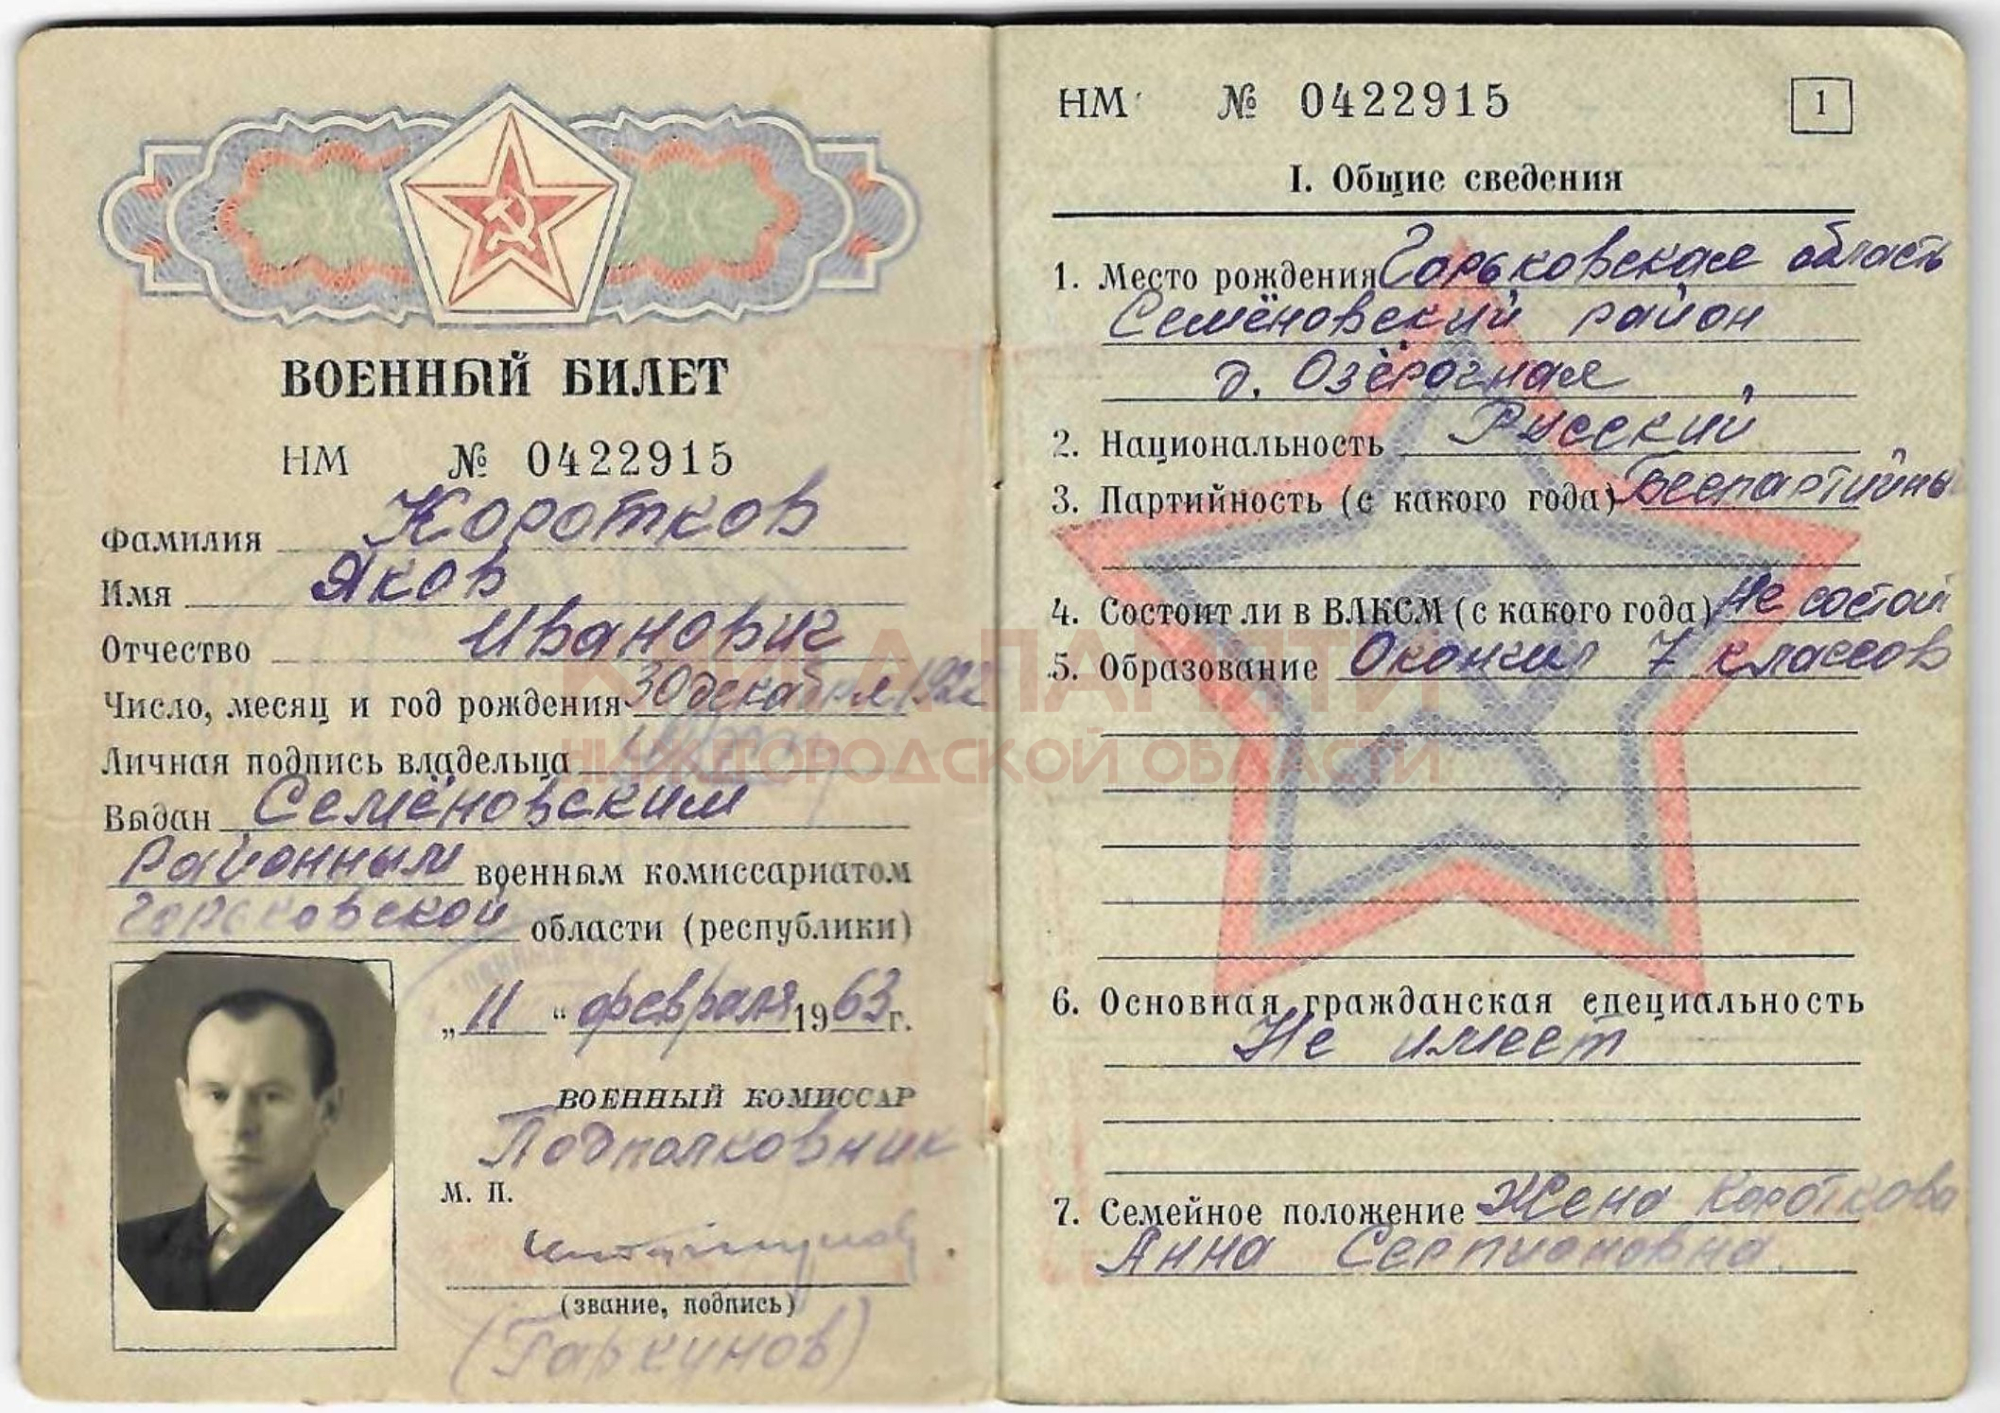 ВОЕННЫЙ БИЛЕТ
НМ № 0422915
Фамилия Коротков
Имя Яков
Отчество Иванович
Число, месяц и год рождения 30 декабря 1922
Личная подпись владельца
Выдан Семёновским
районным военным комиссариатом
Горьковской области (республики)
„ 11 “ февраля 1963 г.
ВОЕННЫЙ КОМИССАР
Подполковник
М. П.
(звание, подпись)
(Гаркунов)
НМ № 0422915 1
I. Общие сведения
1. Место рождения Горьковская область
Семёновский район
д. Озёрочная
2. Национальность Русский
3. Партийность (с какого года) Беспартийны
4. Состоит ли в ВЛКСМ (с какого года) Не состои
5. Образование Окончил 7 классов
6. Основная гражданская специальность
Не имеет
7. Семейное положение Жена Короткова
Анна Серпионовна
КНИГА ПАМЯТИ
НИЖЕГОРОДСКОЙ ОБЛАСТИ